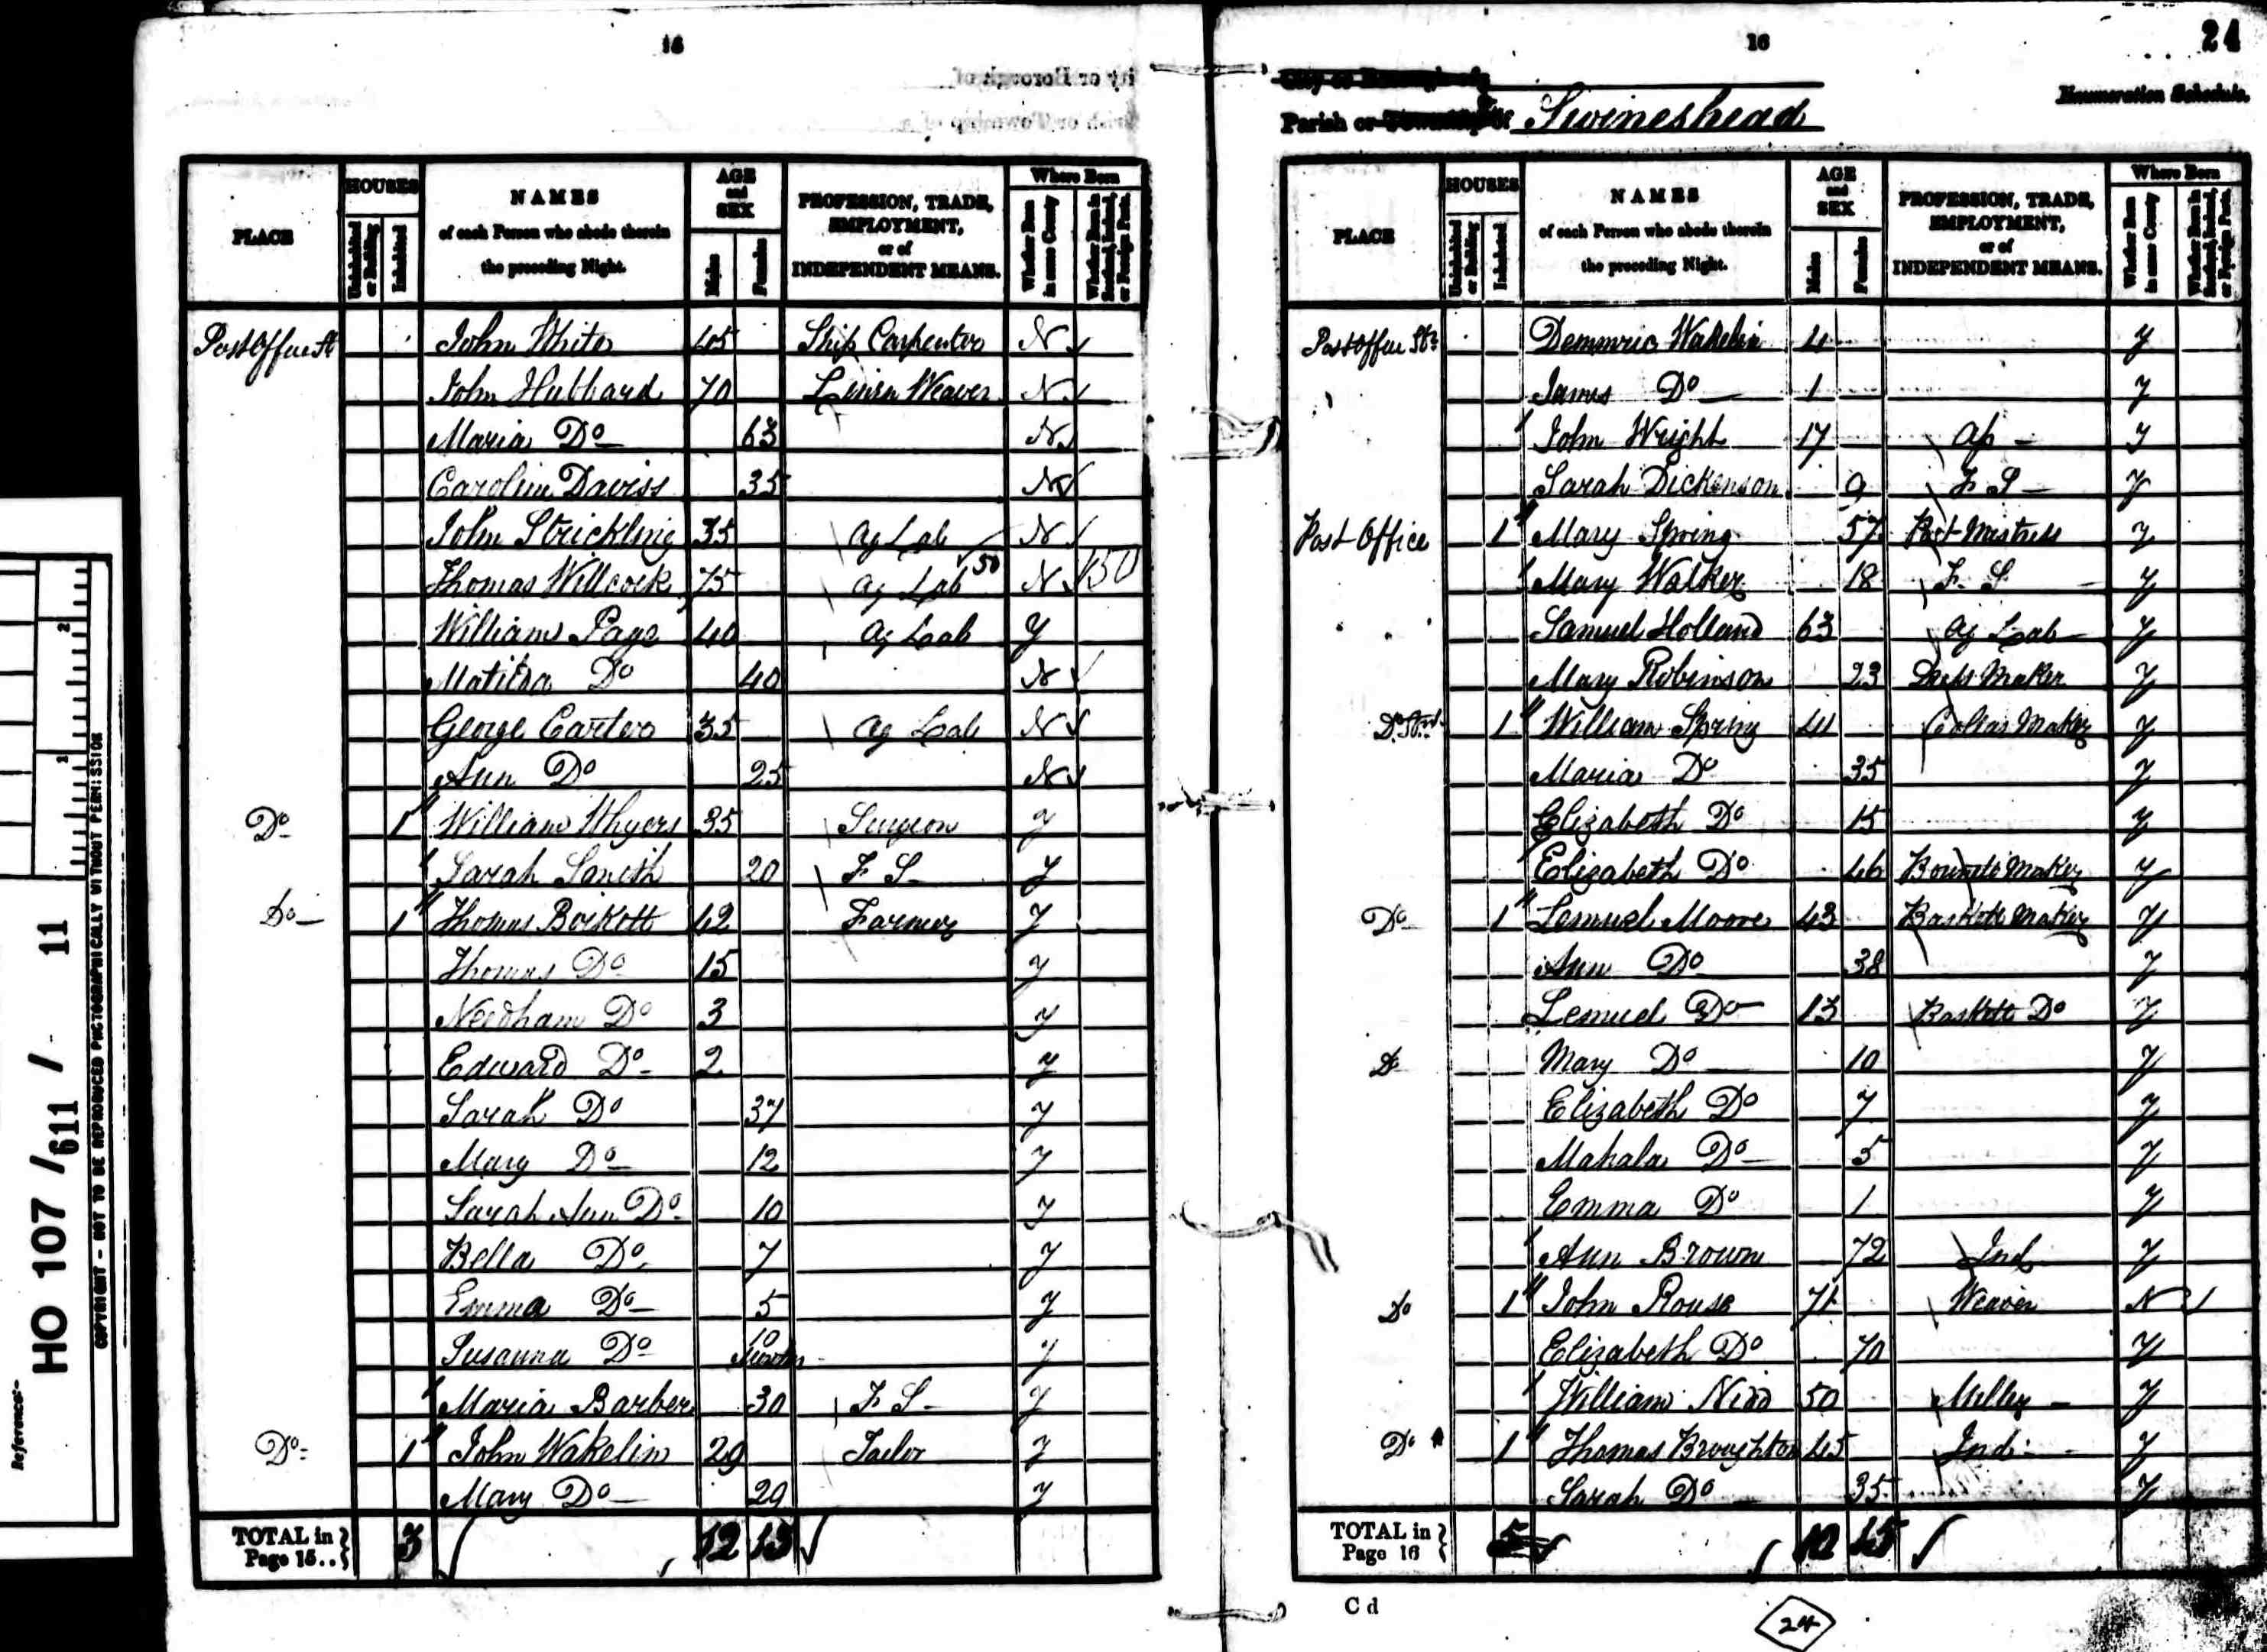 15
PLACE HOUSES Uninhabited or Building Inhabited NAMES of each Person who abode therein the preceding Night. AGE and SEX Males Females PROFESSION, TRADE, EMPLOYMENT, or of INDEPENDENT MEANS. Where Born Whether Born in same County Whether Born in Scotland, Ireland, or Foreign Parts.
Post Office St John White 45 Ship Carpenter N
John Hubbard 70 Linen Weaver N
Maria Do 63 N
Caroline Daviss 35 N
John Strickling 35 Ag Lab N
Thomas Willcock 75 Ag Lab 50 N 150
William Page 40 Ag Lab Y
Matilda Do 40 N
George Carter 35 Ag Lab N
Ann Do 25 N
Do 1 William Whyers 35 Surgeon Y
Sarah Smith 20 F S Y
Do 1 Thomas Boikott 42 Farmer Y
Thomas Do 15 Y
Needham Do 3 Y
Edward Do 2 Y
Sarah Do 37 Y
Mary Do 12 Y
Sarah Ann Do 10 Y
Bella Do 7 Y
Emma Do 5 Y
Susanna Do 10 Months Y
Maria Barber 30 F S Y
Do 1 John Wakelin 29 Tailor Y
Mary Do 29 Y
TOTAL in Page 15.. 3 12 13
16
24
City or Borough of
Enumeration Schedule.
Parish or Township of Swineshead
PLACE HOUSES Uninhabited or Building Inhabited NAMES of each Person who abode therein the preceding Night. AGE and SEX Males Females PROFESSION, TRADE, EMPLOYMENT, or of INDEPENDENT MEANS. Where Born Whether Born in same County Whether Born in Scotland, Ireland, or Foreign Parts.
Post Office Str Wakelin 4 Y
James Do 1 Y
John Wright 17 Ap Y
Sarah Dickenson 9 F S Y
Post Office 1 Mary Spring 57 Post Mistress Y
Mary Walker 18 F. S Y
Samuel Holland 63 Ag Lab Y
Mary Robinson 23 Dress Maker Y
Do Str 1 William Spring 41 Collar Maker Y
Maria Do 35 Y
Elizabeth Do 15 Y
Elizabeth Do 46 Maker Y
Do 1 Lemuel Moore 43 Baskett Maker Y
Ann Do 38 Y
Lemuel Do 13 Baskett Do Y
Do Mary Do 10 Y
Elizabeth Do 7 Y
Mahala Do 5 Y
Emma Do 1 Y
Ann Brown 72 Ind Y
Do 1 John Rouse 71 Weaver N
Elizabeth Do 70 Y
William Nidd 50 Miller Y
Do 1 Thomas Broughton 45 Ind Y
Sarah Do 35 Y
TOTAL in Page 16 5 10 15
C d
24
Reference:-
HO 107 / 611 / 11
COPYRIGHT - NOT TO BE REPRODUCED PHOTOGRAPHICALLY WITHOUT PERMISSION
1
2